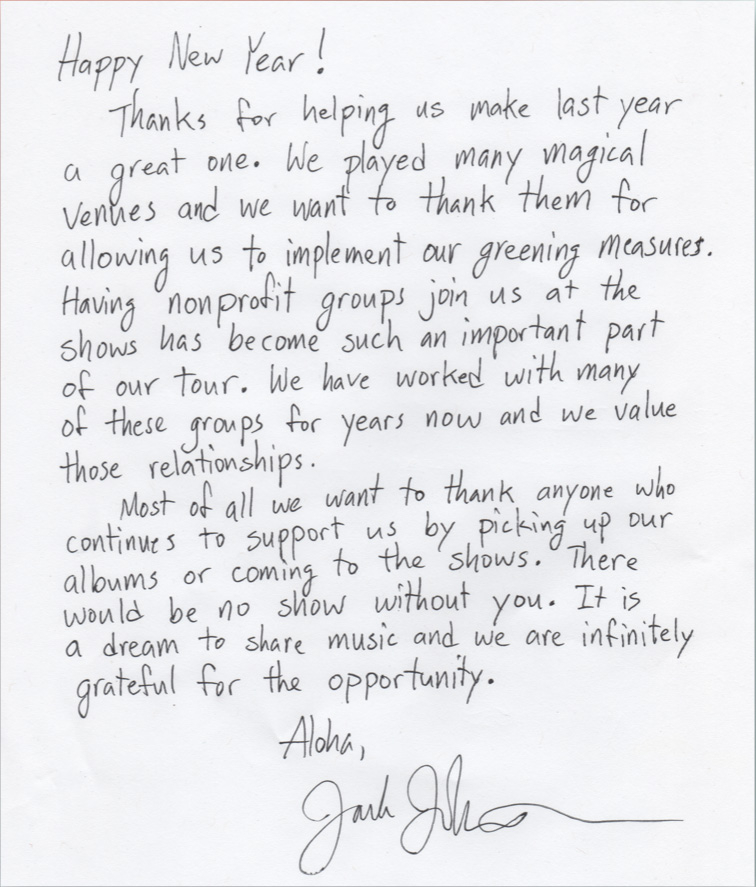 Happy New Year!
Thanks for helping us make last year
a great one. We played many magical
venues and we want to thank them for
allowing us to implement our greening measures.
Having nonprofit groups join us at the
shows has become such an important part
of our tour. We have worked with many
of these groups for years now and we value
those relationships.
Most of all we want to thank anyone who
continues to support us by picking up our
albums or coming to the shows. There
would be no show without you. It is
a dream to share music and we are infinitely
grateful for the opportunity.
Aloha,
Jack Johnson